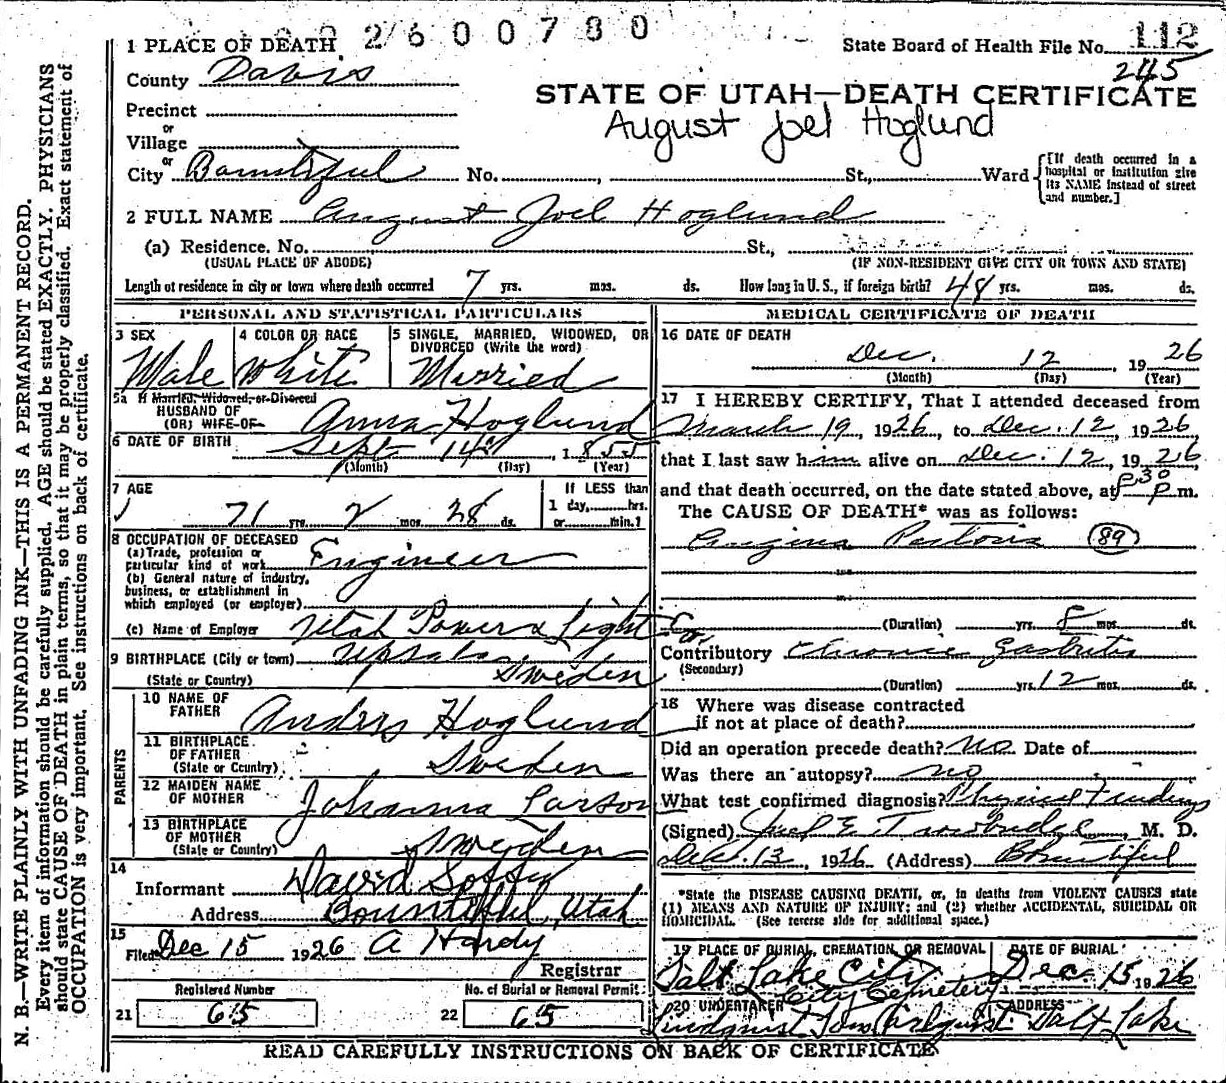 2600780
1 PLACE OF DEATH
State Board of Health File No. 112
245
County Davis
STATE OF UTAH—DEATH CERTIFICATE
Precinct
August Joel Hoglund
or
Village
or
City Bountiful No. , St., Ward
[If death occurred in a hospital or institution give its NAME instead of street and number.]
2 FULL NAME August Joel Hoglund
(a) Residence. No. St.,
(USUAL PLACE OF ABODE) (IF NON-RESIDENT GIVE CITY OR TOWN AND STATE)
Length of residence in city or town where death occurred 7 yrs. mos. ds. How long in U. S., if foreign birth? 48 yrs. mos. ds.
PERSONAL AND STATISTICAL PARTICULARS
3 SEX
Male
4 COLOR OR RACE
White
5 SINGLE, MARRIED, WIDOWED, OR
DIVORCED (Write the word)
Married
5a If Married, Widowed, or Divorced
HUSBAND OF
(OR) WIFE OF
Anna Hoglund
6 DATE OF BIRTH
Sept 14th, 1855
(Month) (Day) (Year)
7 AGE
71 yrs. 2 mos. 28 ds.
If LESS than
1 day, hrs.
or min.?
8 OCCUPATION OF DECEASED
(a) Trade, profession or
particular kind of work Engineer
(b) General nature of industry,
business, or establishment in
which employed (or employer)
(c) Name of Employer Utah Power & Light Co.
9 BIRTHPLACE (City or town) Upsala
(State or Country) Sweden
PARENTS
10 NAME OF
FATHER Anders Hoglund
11 BIRTHPLACE
OF FATHER
(State or Country) Sweden
12 MAIDEN NAME
OF MOTHER Johanna Larson
13 BIRTHPLACE
OF MOTHER
(State or Country) Sweden
14
Informant David
Address Bountiful, Utah
15
Filed Dec 15 1926 A Hardy
Registrar
Registered Number
21 65
No. of Burial or Removal Permit
22 65
MEDICAL CERTIFICATE OF DEATH
16 DATE OF DEATH
Dec. 12 1926
(Month) (Day) (Year)
17 I HEREBY CERTIFY, That I attended deceased from
March 19, 1926, to Dec. 12, 1926
that I last saw him alive on Dec. 12, 1926
and that death occurred, on the date stated above, at P. m.
The CAUSE OF DEATH* was as follows:
Angina Pectoris (89)
(Duration) yrs. 8 mos. ds.
Contributory Chronic Gastritis
(Secondary)
(Duration) yrs. 12 mos. ds.
18 Where was disease contracted
if not at place of death?
Did an operation precede death? No Date of
Was there an autopsy? no
What test confirmed diagnosis? Physical Findings
(Signed) E. Trowbridge, M. D.
Dec. 13, 1926 (Address) Bountiful
*State the DISEASE CAUSING DEATH, or, in deaths from VIOLENT CAUSES state
(1) MEANS AND NATURE OF INJURY; and (2) whether ACCIDENTAL, SUICIDAL OR
HOMICIDAL. (See reverse side for additional space.)
19 PLACE OF BURIAL, CREMATION, OR REMOVAL
Salt Lake City
City Cemetery
DATE OF BURIAL
Dec. 15 1926
20 UNDERTAKER
Lindquist
ADDRESS
Salt Lake
READ CAREFULLY INSTRUCTIONS ON BACK OF CERTIFICATE
N. B.—WRITE PLAINLY WITH UNFADING INK—THIS IS A PERMANENT RECORD.
Every item of information should be carefully supplied. AGE should be stated EXACTLY. PHYSICIANS
should state CAUSE OF DEATH in plain terms, so that it may be properly classified. Exact statement of
OCCUPATION is very important. See instructions on back of certificate.